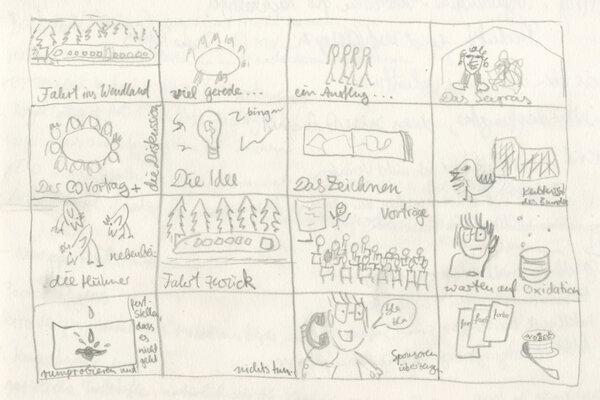 Fahrt ins Wendland
viel Gerede...
ein Ausflug...
Das Seegras
Der Vortrag +
die Diskussion
Die Idee
bing
Das Zeichnen
des Bundes
die Hühner
nebenbei
Fahrt zurück
Vorträge
warten auf Oxidation
rumprobieren und
fest-
stellen,
dass es
nicht
geht
nichts tun.
bla
bla
Sponsoren
überzeug.